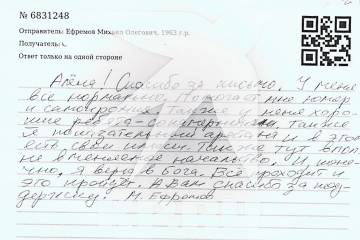 № 6831248
Отправитель: Ефремов Михаил Олегович, 1963 г.р.
Получатель:
Ответ только на одной стороне
Алёна! Спасибо за письмо. У меня
все нормально. Помогают мне юмор
и самоирония. Также у меня хоро-
шие ребята - соучерники, также
Я показательный арестант и в этом
есть свои плюсы. Также тут впол-
не вменяемое начальство. И, конеч-
но, я верю в Бога. Всё проходит и
это пройдёт. А Вам спасибо за под-
держку! М. Ефремов